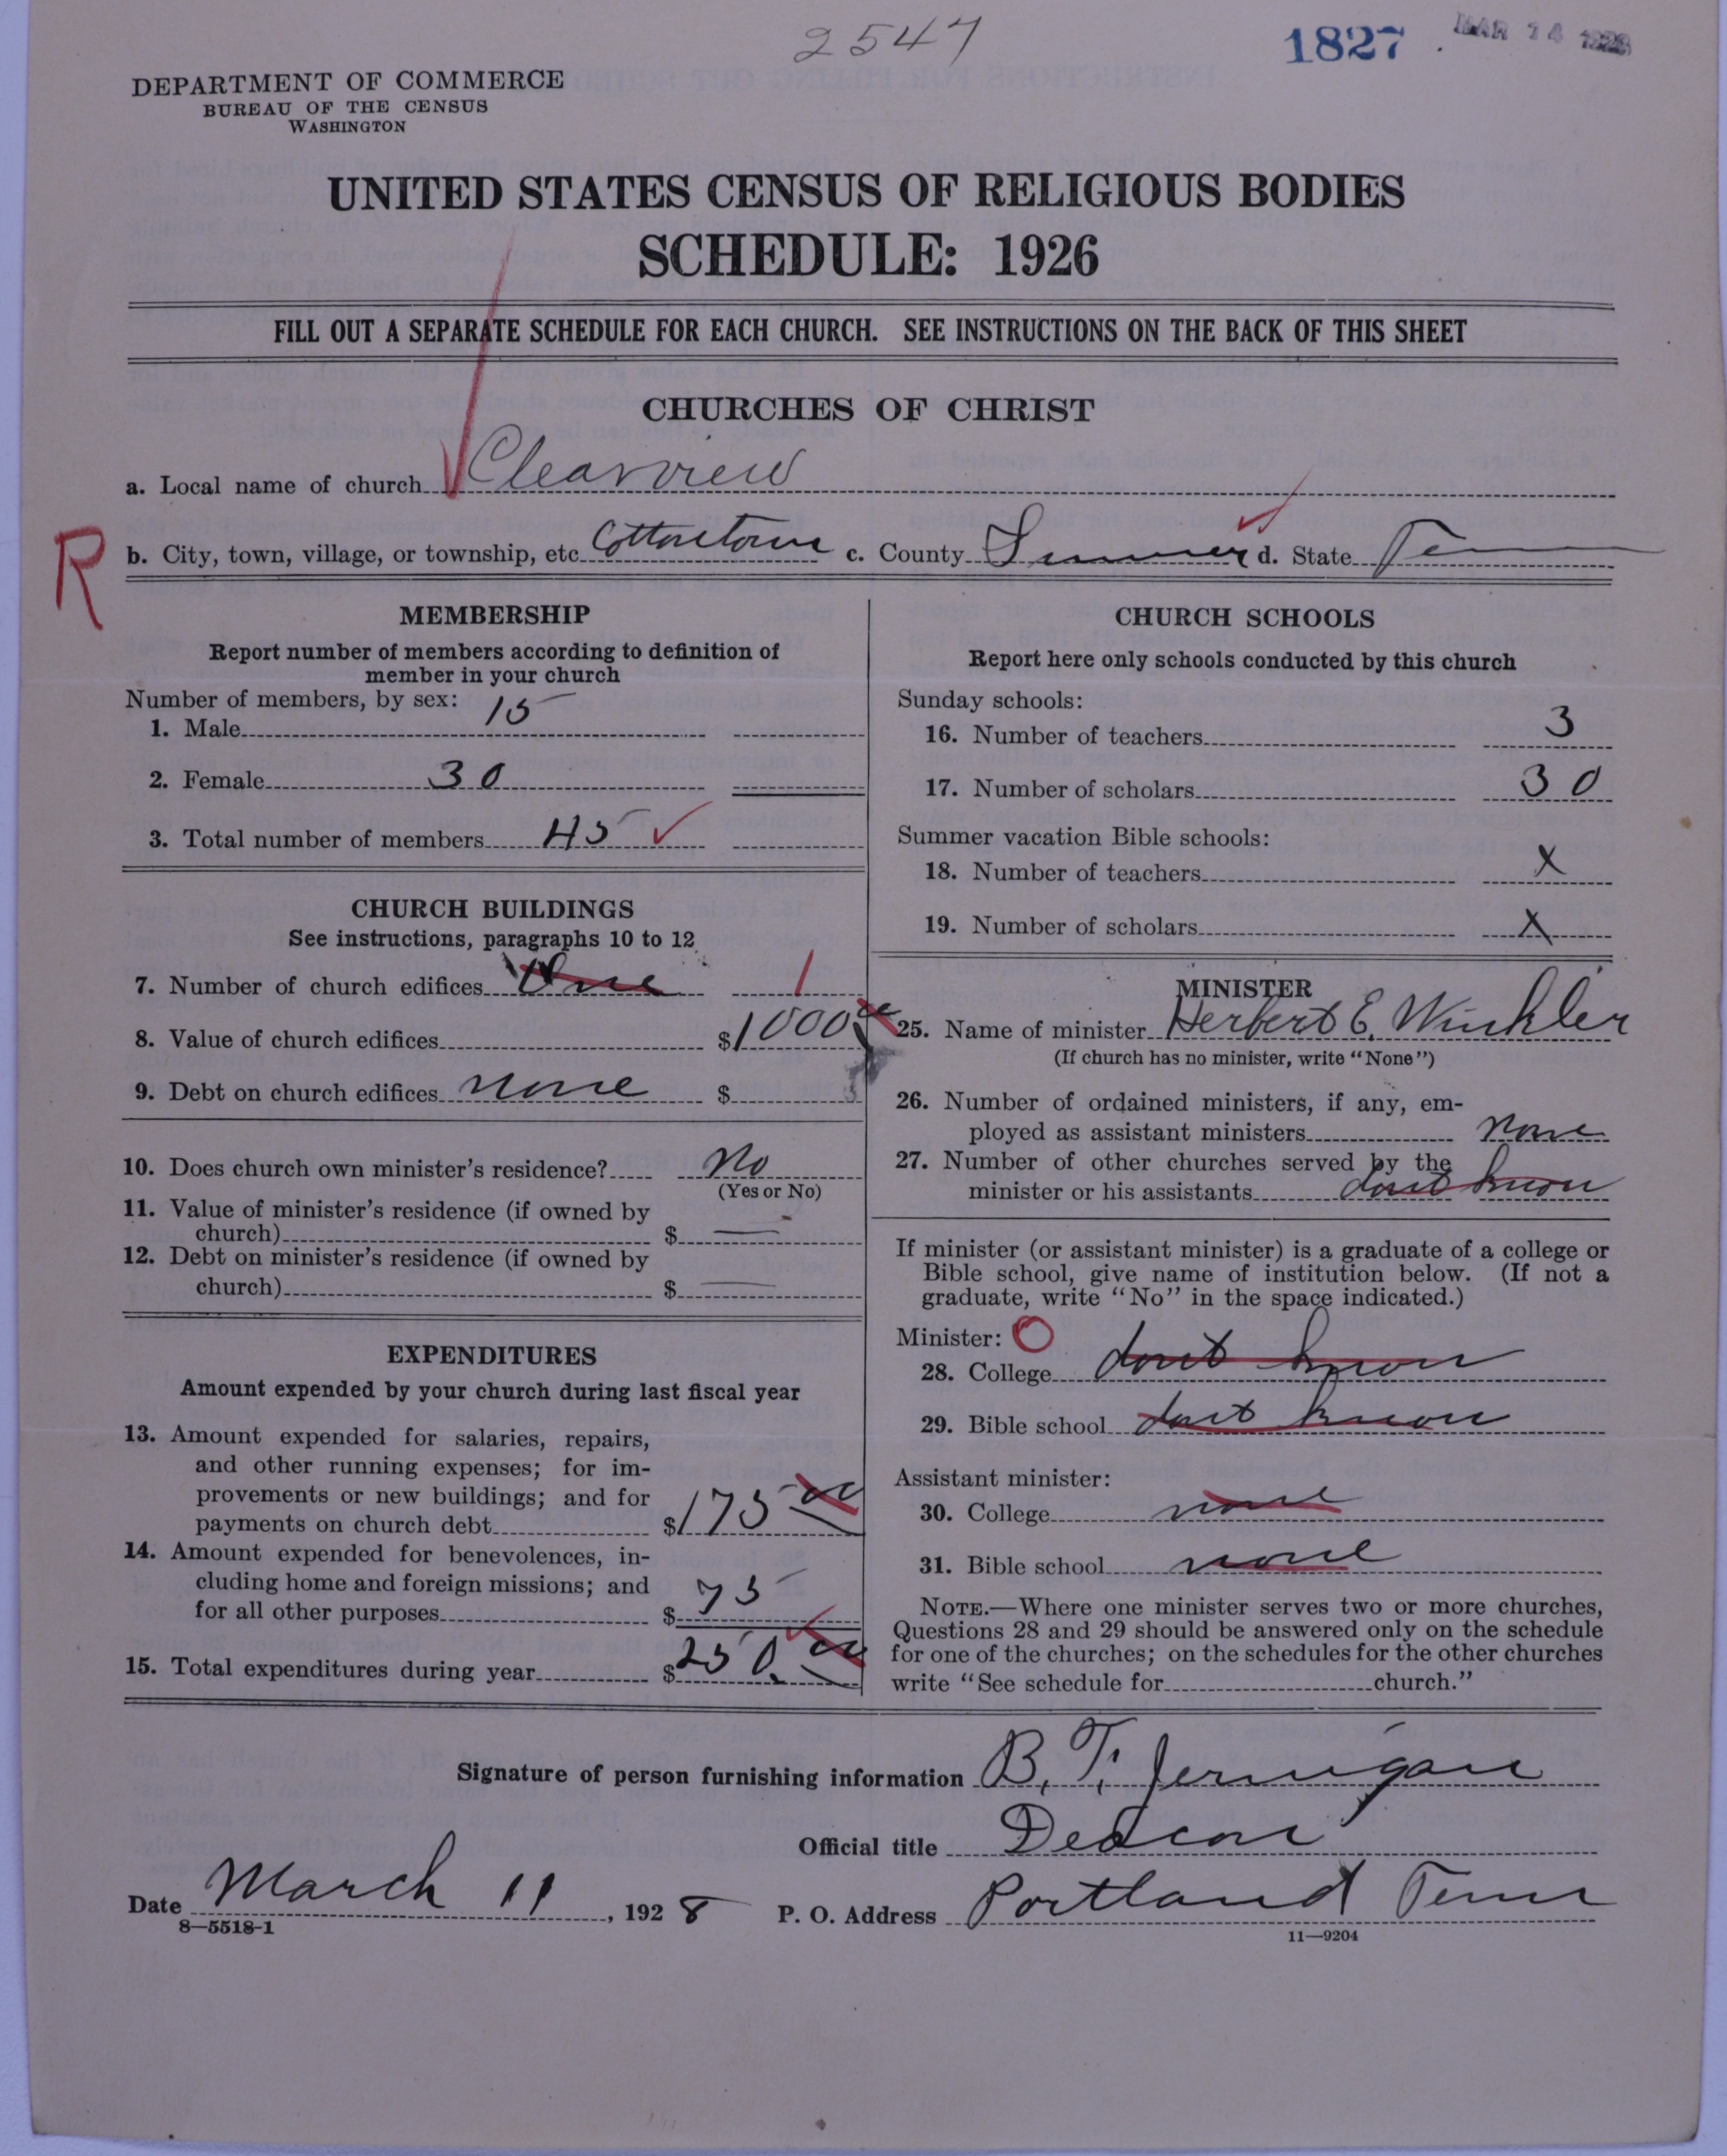 2547
1827 MAR 14 1928
DEPARTMENT OF COMMERCE
BUREAU OF THE CENSUS
WASHINGTON
UNITED STATES CENSUS OF RELIGIOUS BODIES
SCHEDULE: 1926
FILL OUT A SEPARATE SCHEDULE FOR EACH CHURCH. SEE INSTRUCTIONS ON THE BACK OF THIS SHEET
CHURCHES OF CHRIST
a. Local name of church Clearview
R
b. City, town, village, or township, etc. Cottontown c. County Sumner d. State Tenn
MEMBERSHIP
Report number of members according to definition of
member in your church
Number of members, by sex:
1. Male 15
2. Female 30
3. Total number of members 45
CHURCH BUILDINGS
See instructions, paragraphs 10 to 12
7. Number of church edifices One 1
8. Value of church edifices $1000 00
9. Debt on church edifices none $
10. Does church own minister's residence? No
(Yes or No)
11. Value of minister's residence (if owned by
church) $ —
12. Debt on minister's residence (if owned by
church) $ —
EXPENDITURES
Amount expended by your church during last fiscal year
13. Amount expended for salaries, repairs,
and other running expenses; for im-
provements or new buildings; and for
payments on church debt $175 00
14. Amount expended for benevolences, in-
cluding home and foreign missions; and
for all other purposes $ 75
15. Total expenditures during year $250.00
CHURCH SCHOOLS
Report here only schools conducted by this church
Sunday schools:
16. Number of teachers 3
17. Number of scholars 30
Summer vacation Bible schools:
18. Number of teachers X
19. Number of scholars X
MINISTER
25. Name of minister Herbert E. Winkler
(If church has no minister, write "None")
26. Number of ordained ministers, if any, em-
ployed as assistant ministers none
27. Number of other churches served by the
minister or his assistants dont know
If minister (or assistant minister) is a graduate of a college or
Bible school, give name of institution below. (If not a
graduate, write "No" in the space indicated.)
Minister: O
28. College dont know
29. Bible school dont know
Assistant minister:
30. College none
31. Bible school none
NOTE.—Where one minister serves two or more churches,
Questions 28 and 29 should be answered only on the schedule
for one of the churches; on the schedules for the other churches
write "See schedule for church."
Signature of person furnishing information B. T. Jernigan
Official title Deacon
Date March 11, 1928 P. O. Address Portland Tenn
8—5518-1
11—9204